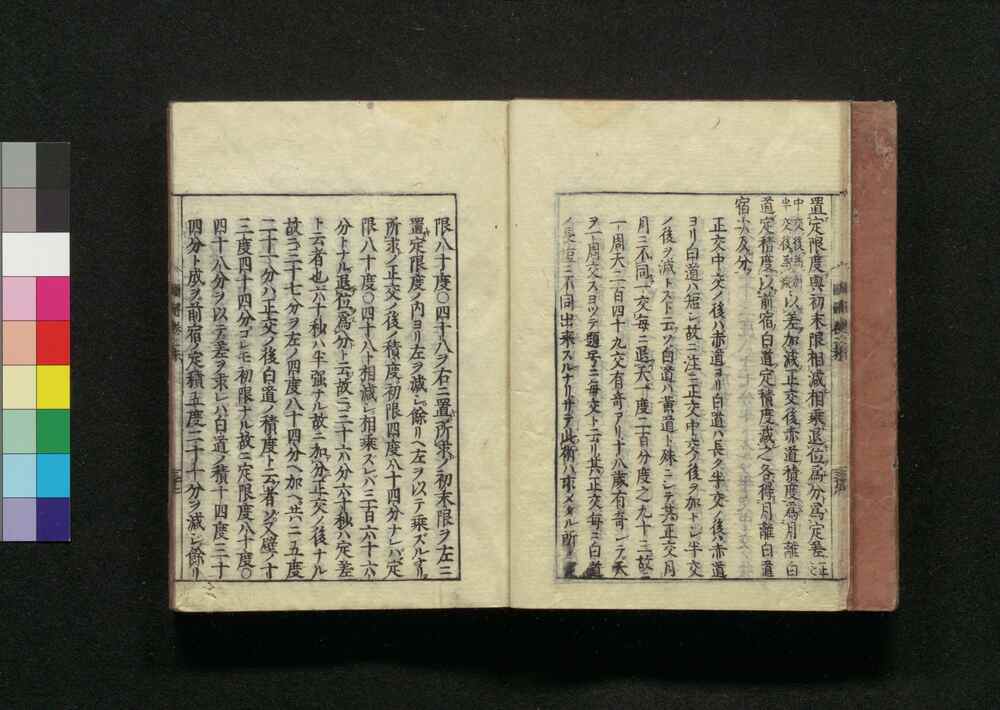 置定限度與初末限相減相乗退位為分為定差正交
中交後為加半交後為減以差加減正交後赤道積度為月離白
道定積度以前宿白道定積度減之各得月離白道
宿度及分
正交中交ノ後ハ赤道ヨリ白道ハ長ク半交ノ後ハ赤道
ヨリ白道ハ短シ故ニ注ニ正交中交ノ後ヲ加トシ半交
ノ後ヲ減トスト云ツ白道ハ黄道ト殊ニシテ其正交月
月ニ不同一交毎ニ退天一度二百分度之九十三故ニ
一周天二百四十九交有奇アリ十八歳有奇シテ天
ヲ一周交スヨツテ題号ニ毎交ト云リ其正交毎ニ白道
ノ長短ニ不同出来スルナリサテ此術ハ求メタル所ノ
限八十度〇四十八ヲ右ニ置所求ノ初末限ヲ左ニ
置定限度ノ内ヨリ左ヲ減シ餘リヘ左ヲ以テ乗スルナリ
所求ノ正交ノ後ノ積度初限四度八十四分ナレハ定
限八十度〇四十八ト相減シ相乗スレハ三百六十六
分トナル退位為分ト云故ニ三十六分六十秒ハ定差
ト云者也六十秒ハ半強ナル故ニ加分正交ノ後ナル
故ニ三十七分ヲ左ノ四度八十四分ヘ加ヘ共ニ五度
二十一分ハ正交ノ後白道ノ積度ト云者ゾ又壁ノ十
三度四十四分コレモ初限ナル故ニ定限度八十度〇
四十八分ヲ以テ差ヲ乗レハ白道ノ積十四度三十
四分ト成ヲ前宿ノ定積五度二十一分ヲ減シ餘リ